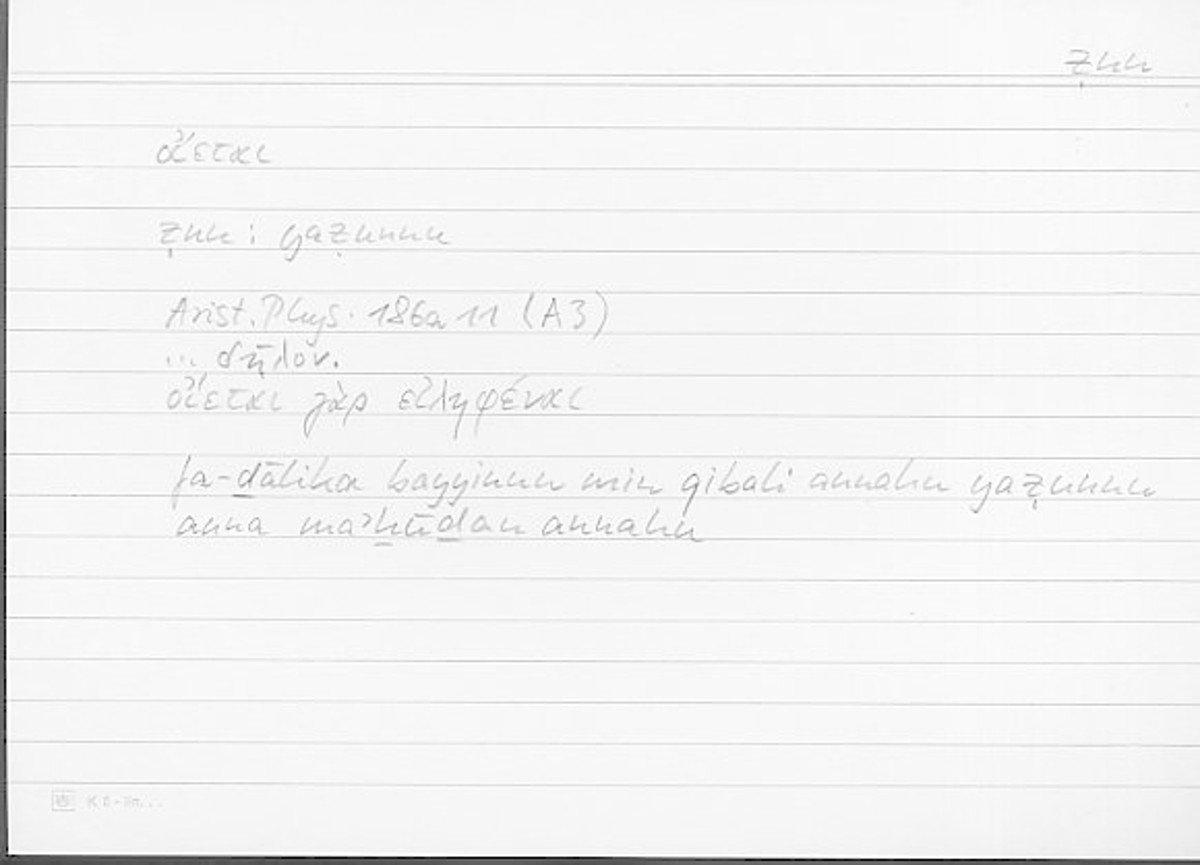 ẓnn
οἴεται
ẓnn: yaẓunnu
Arist. Phys. 186a 11 (A3)
... δῆλον.
οἴεται γὰρ εἰληφέναι
fa-ḏālika bayyinun min qibali annahu yaẓunnu
anna maʾḫūḏan annahu